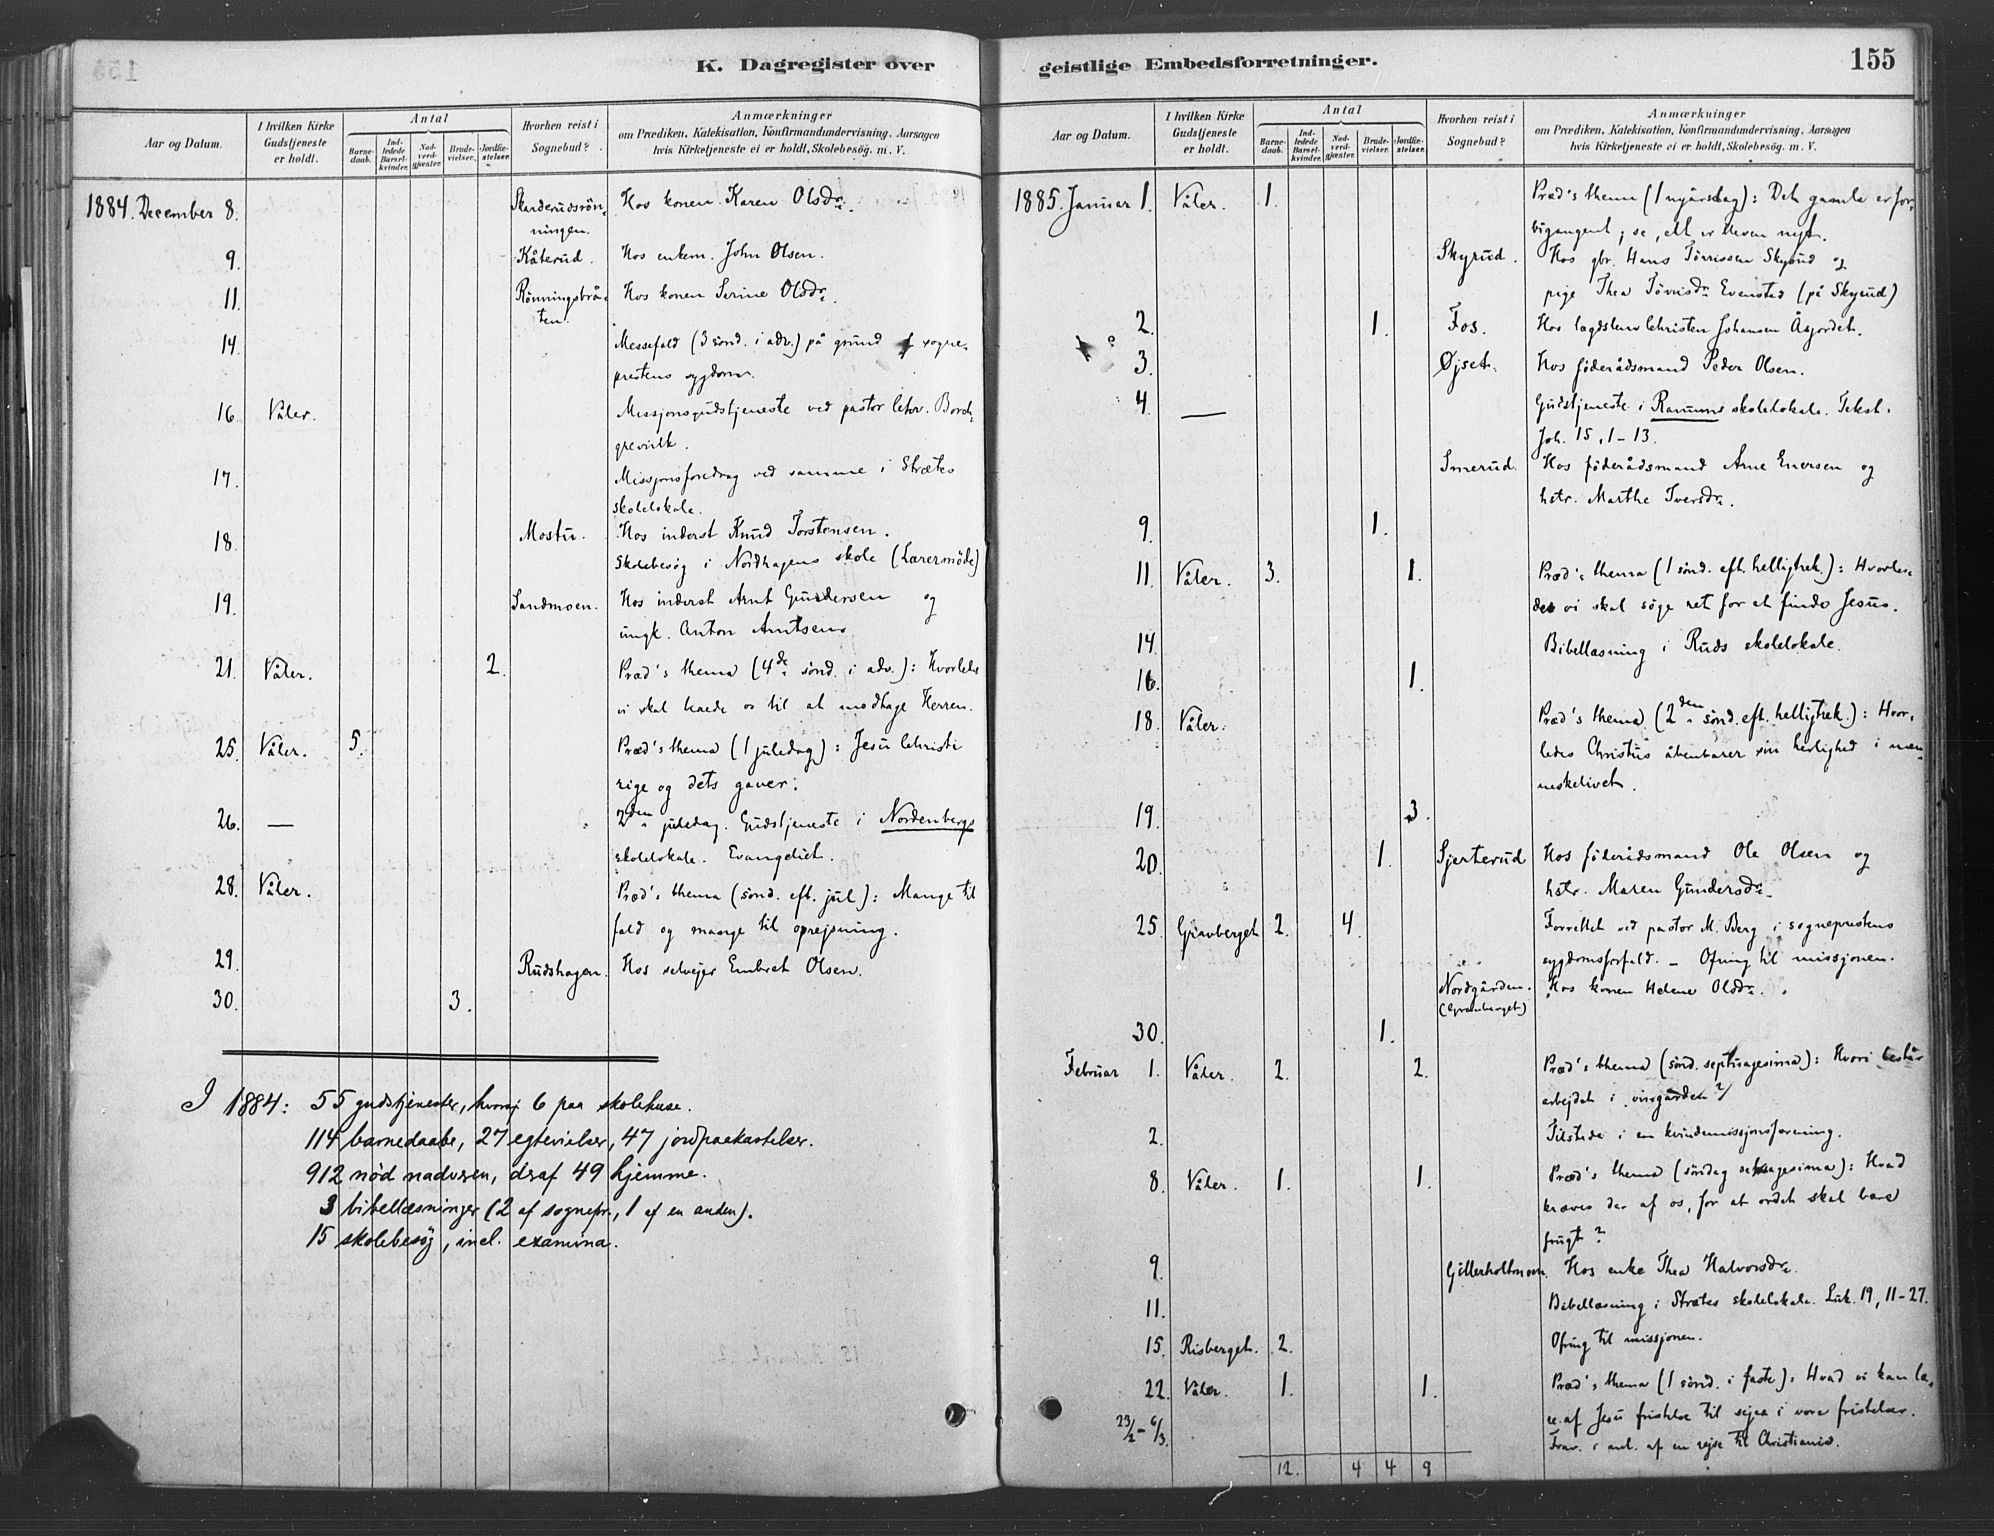 K. Dagregister over
Aar og Datum.
I hvilken Kirke Gudstjeneste er holdt.
Antal
Barne-daab.
Ind-ledede Barsel-kvinder.
Nad-verd-gjæster.
Brude-vielser.
Jordfæ-stelser.
Hvorhen reist i Sognebud?
Anmærkninger
om Prædiken, Katekisation, Konfirmandundervisning, Aarsagen
hvis Kirketjeneste ei er holdt, Skolebesøg. m. V.
1884. December 8. Skarderudsrön- Hos konen Karen Olsdr.
ningen.
9. Kåterud. Hos enkem. John Olsen.
11. Rönningsbrå- Hos konen Serine Olsdr.
ten.
14. Messefald (3 sönd. i adv.) på grund af sogne-
prestens sygdom.
16. Våler. Missjonsgudstjeneste ved pastor Chr. Borch-
grevink.
17. Missjonsforedrag ved samme i Strætes
skolelokale.
18. Mostu. Hos inderst Knud Torstensen.
Skolebesög i Nordhagens skole (Lærermöde)
19. Sandmoen. Hos inderst Arnt Gundersen og
ungk. Anton Arntsen.
21. Våler. 2. Præd's thema (4de sönd. i adv.): Hvorledes
vi skal berede os til at modtage Herren.
25. Våler. 5. Præd's thema (1 juledag): Jesu Christi
rige og dets gaver.
26. — 2den juledag. Gudstjeneste i Nordenbergs
skolelokale. Evangeliet.
28. Våler. Præd's thema (sönd. eft. jul): Mange til
fald og mange til oprejsning.
29. Rudshagen. Hos selvejer Embret Olsen.
30. 3.
I 1884: 55 gudstjenester, hvoraf 6 paa skolehuse.
114 barnedaabe, 27 egtevielser, 47 jordpaakastelser.
912 nød nadveren, deraf 49 hjemme.
3 bibellæsninger (2 af sognepr., 1 af en anden).
15 skolebesög, incl. examina.
geistlige Embedsforretninger.
155
Aar og Datum.
I hvilken Kirke Gudstjeneste er holdt.
Antal
Barne-daab.
Ind-ledede Barsel-kvinder.
Nad-verd-gjæster.
Brude-vielser.
Jordfæ-stelser.
Hvorhen reist i Sognebud?
Anmærkninger
om Prædiken, Katekisation, Konfirmandundervisning, Aarsagen
hvis Kirketjeneste ei er holdt, Skolebesøg. m. V.
1885. Januar 1. Våler. 1. Præd's thema (1 nyårsdag): Det gamle er for-
bigangent; se, alt er blevet nyt.
Skyrud. Hos gbr. Hans Törrissen Skyrud og
pige Thea Törrisdr Evensted (på Skyrud)
2. 1. Fos. Hos lægdslem Christen Johansen Åsjordet.
3. Øjset. Hos föderådsmand Peder Olsen.
4. — Gudstjeneste i Ramums skolelokale. Tekst.
Joh. 15, 1-13.
Smerud. Hos föderådsmand Arne Enersen og
hstr. Marthe Iversdr.
9. 1.
11. Våler. 3. 1. Præd's thema (1 sönd. eft. helligtrek.): Hvorle-
des vi skal söge ret for at finde Jesus.
14. Bibellæsning i Ruds skolelokale.
16. 1.
18. Våler. Præd's thema (2den sönd. eft. helligtrek.): Hvor-
ledes Christus åbenbarer sin herlighed i men-
neskelivet.
19. 3.
20. 1. Sjerterud Hos föderådsmand Ole Olsen og
hstr. Maren Gundersdr.
25. Gravberget 2. 4. Forrettet ved pastor M. Berg i sogneprestens
sygdomsforfald. — Ofring til missjonen.
Nordgården. Hos konen Helene Olsdr.
(Gravberget)
30. 1.
Februar 1. Våler. 2. 2. Præd's thema (sönd. septuagesima): Hvori består
arbejdet i vingården?
2. Tilstede i en kvindemissjonsforening.
8. Våler. 1. 1. Præd's thema (söndag sexagesima): Hvad
kræves der af os, for at ordet skal bære
frugt?
9. Gillerholtmoen. Hos enke Thea Halvorsdr.
11. Bibellæsning i Strætes skolelokale. Luk. 19, 11-27.
15. Risberget. 2. Ofring til missjonen.
22. Våler. 1. 1. Præd's thema (1 sönd. i faste): Hvad vi kan læ-
re af Jesu fristelse til sejer i vore fristelser.
23/2 - 6/3. Frav. i anl. af en rejse til Christiania.
12. 4 4 9